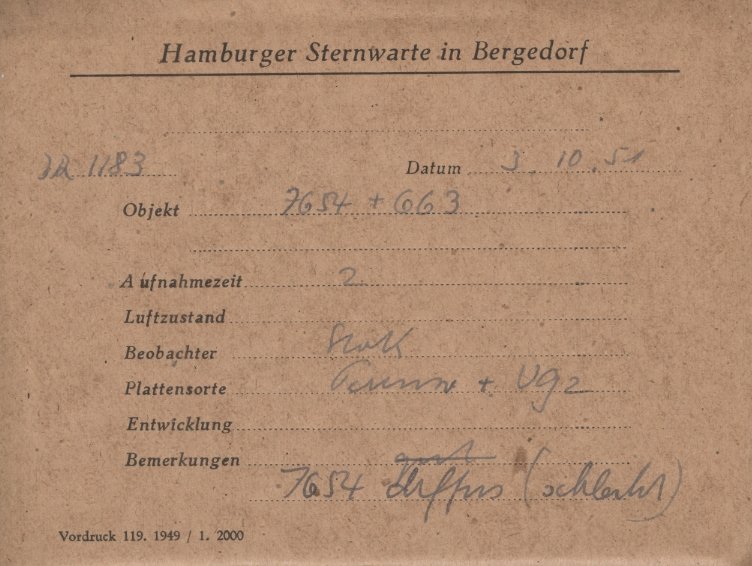 Hamburger Sternwarte in Bergedorf
1183 Datum 3. 10. 51
Objekt 7654 + 663
Aufnahmezeit 2
Luftzustand
Beobachter
Plattensorte + UG2
Entwicklung
Bemerkungen
7654 diffus (schlecht)
Vordruck 119. 1949 / 1. 2000